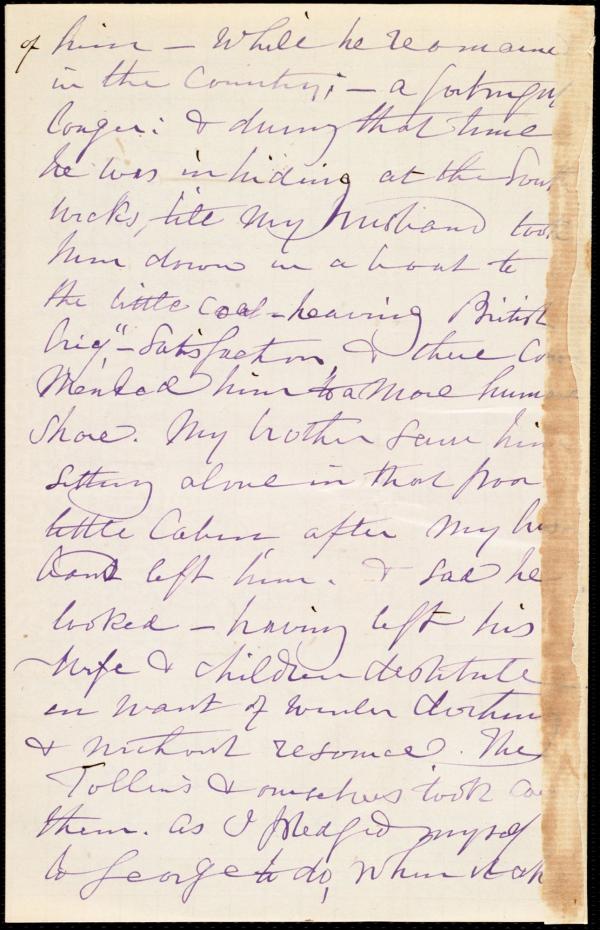 of him – while he remaine
in the Country; – a fortnight
longer: & during that time
he was in hiding at the South
wicks, till my husband took
him down in a boat to
the little coal-heaving British
brig, "Satisfaction & there com
mended him to a more humane
shore. My brother saw him
sitting alone in that poor
little Cabin after my hus
band left him. & sad he
looked – having left his
wife & children destitute
in want of winter clothing
& without resource. The
Tollens & ourselves took ca
them. as I pledged myself
to George to do, when